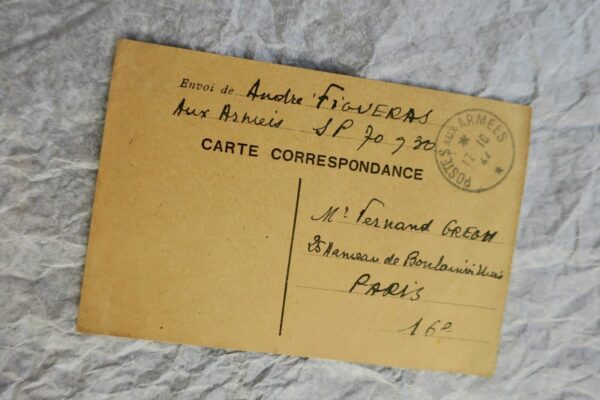 Envoi de André FIGUERAS
Aux Armées SP 70 930
CARTE CORRESPONDANCE
POSTES AUX ARMEES
17 10
44
Mr Fernand GREGH
25 Hameau de Boulainvilliers
PARIS
16e